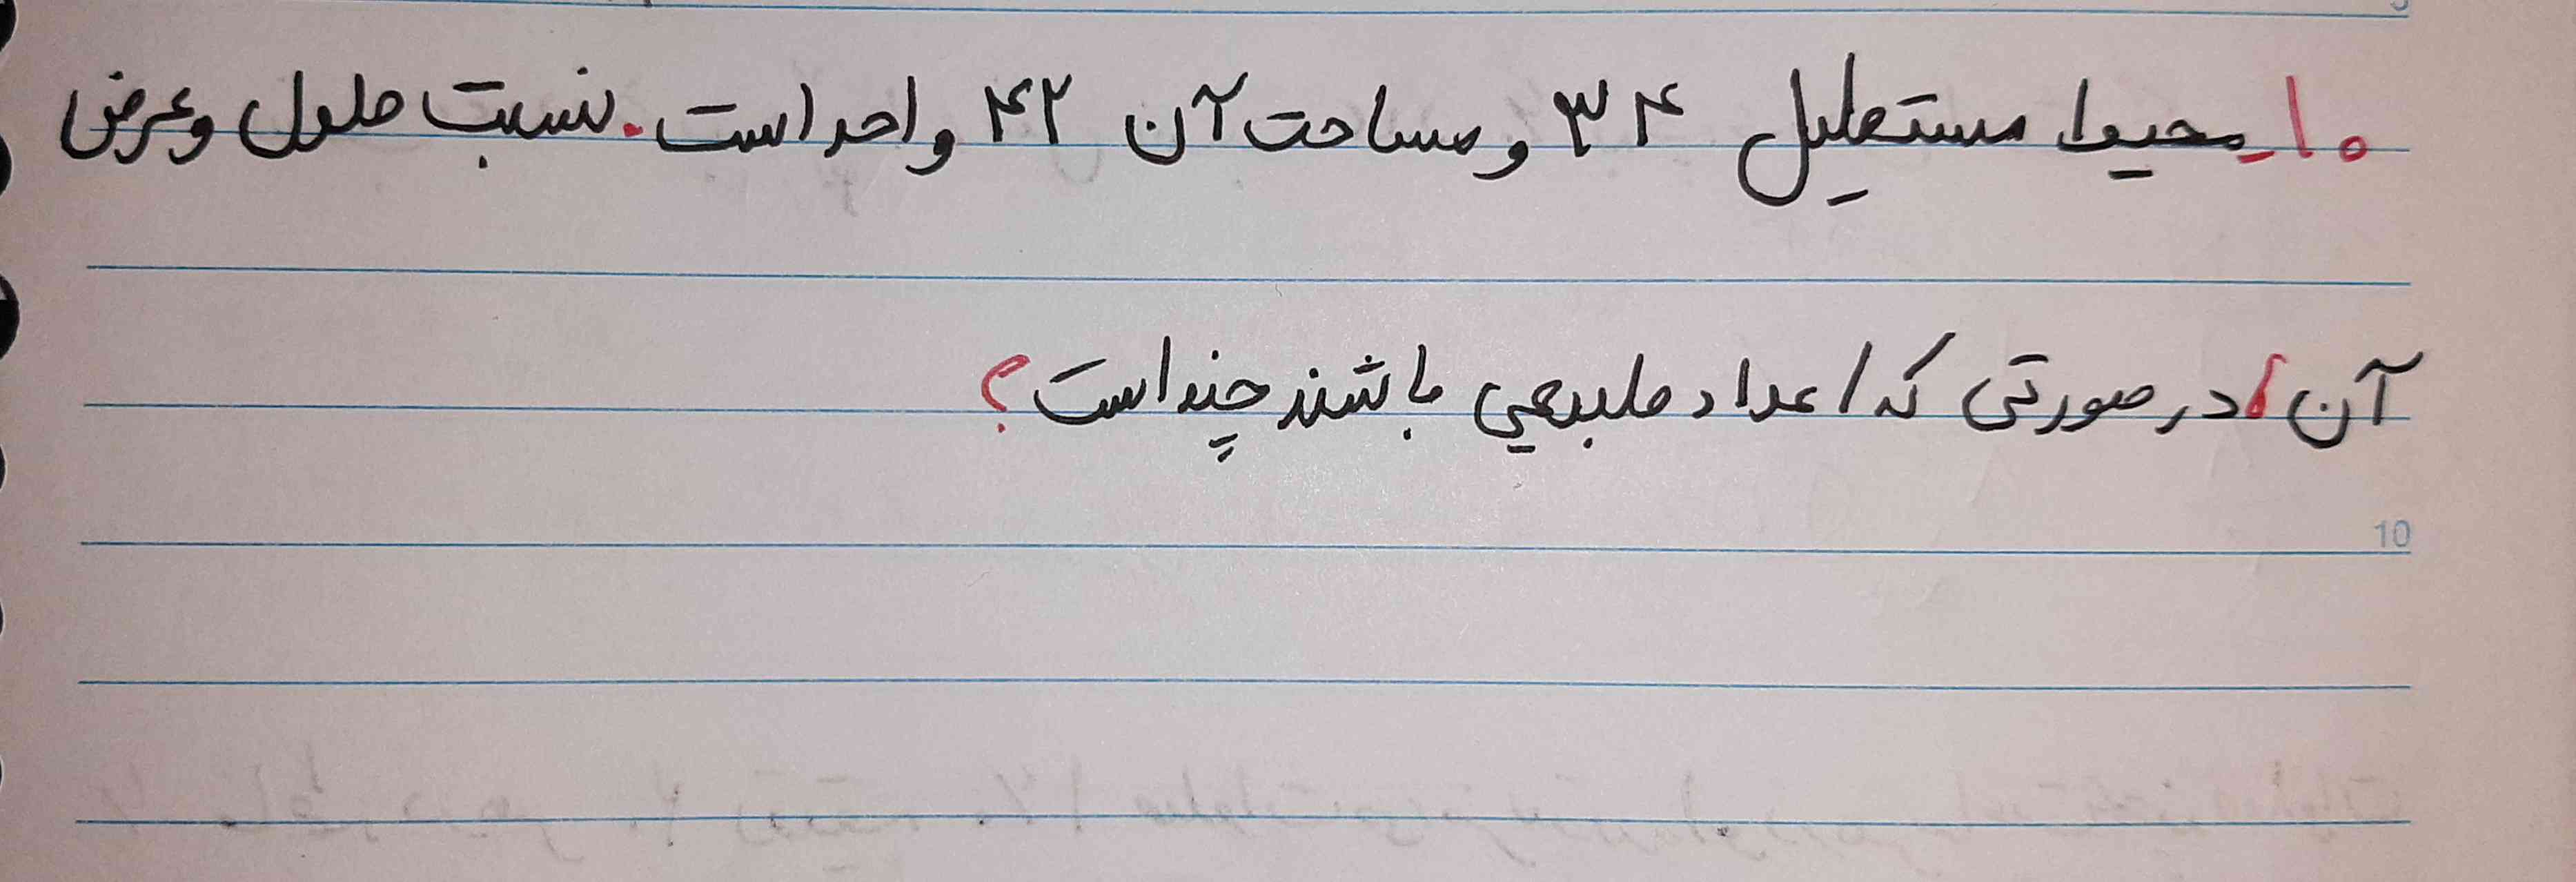 ۱۰_ محیط مستطیل ۳۴ و مساحت آن ۴۲ واحد است. نسبت طول و عرض
آن، در صورتی که اعداد طبیعی باشند چند است؟
10